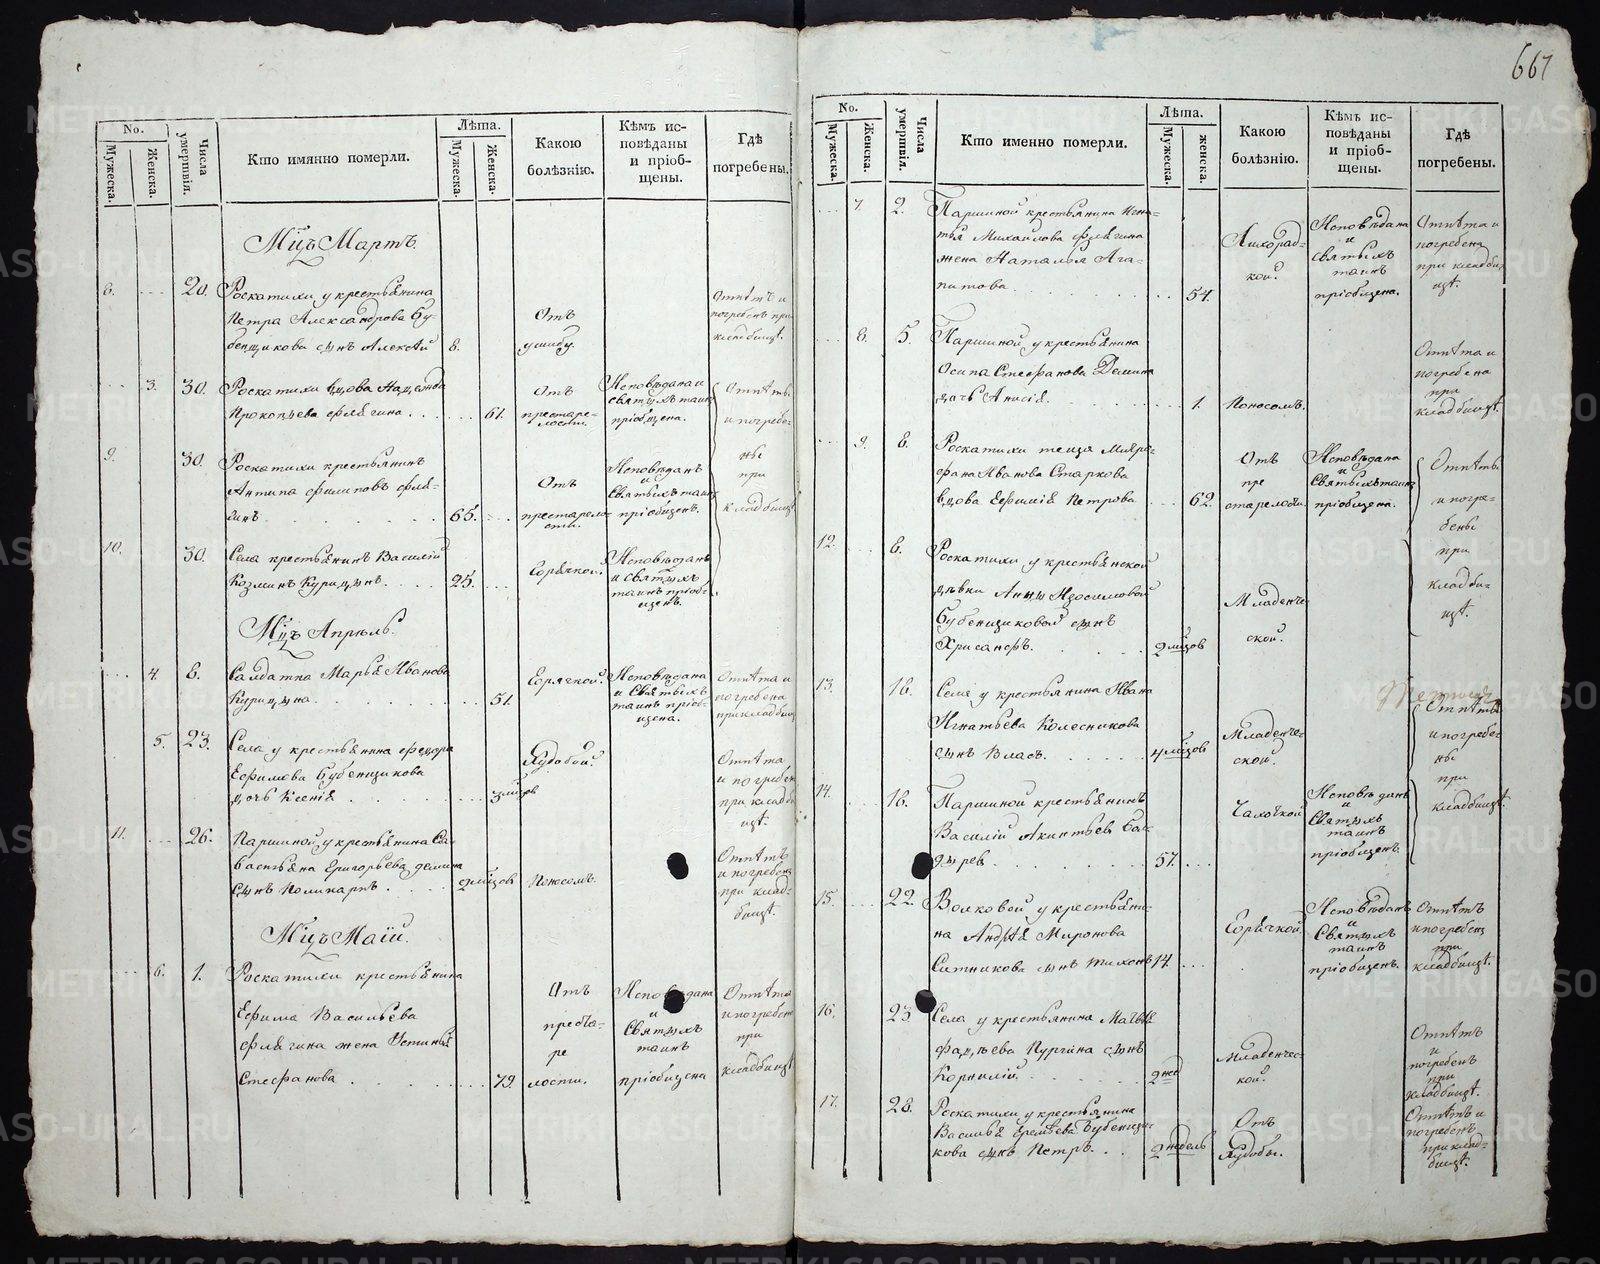 667
No.
Мужеска.
Женска.
Числа умертвія.
Кто имянно померли.
Лѣта.
Мужеска.
Женска.
Какою
болѣзнію.
Кѣмъ ис-
повѣданы
и пріоб-
щены.
Гдѣ
погребены.
Мцъ Мартъ.
8. 20. Роскатихи у крестьянина
Петра Александрова Бу-
бенщикова сынъ Алексѣй 8.
Отъ
ушибу
Отпѣтъ и
погребенъ при
кладбищѣ.
3. 30. Роскатихи вдова Надежда
Прокопьева Флягина. 61.
Отъ
престаре-
лости.
Исповѣдана и
святыхъ таинъ
пріобщена.
9. 30. Роскатихи крестьянинъ
Антипа Филиповъ Фля-
гинъ. 65.
Отъ
престарело-
сти.
Исповѣданъ
и
Святыхъ таинъ
пріобщенъ.
10. 30. Села крестьянинъ Василій
Козминъ Курицынъ. 25.
Горячкой.
Исповѣданъ
и святыхъ
таинъ пріоб-
щенъ.
Отпѣты
и погребе-
ны
при
кладбищѣ
Мцъ Апрель.
4. 8. Салдатка Марья Иванова
Курицына. 51.
Горячкой.
Исповѣдана
и Святыхъ
таинъ пріоб-
щена.
Отпѣта и
погребена
при кладбищ
5. 23. Села у крестьянина Федора
Ефимова Бубенщикова
дочь Ксенія. 3 мцов
Худобой.
Отпѣта
и погребен
при кладби
щѣ.
11. 26. Паршиной у крестьянина Са-
вастьяна Григорьева Демина
сынъ Поликарпъ. 2 мцов
Поносомъ.
Отпѣтъ
и погребенъ
при клад-
бищѣ.
Мцъ Маій.
6. 1. Роскатихи крестьянина
Ефима Васильева
Флягина жена Устинья
Стефанова. 79.
Отъ
преста-
ре
лости.
Исповѣдана
и
Святыхъ
таинъ
пріобщена
Отпѣта
и погребена
при
кладбищѣ
No.
Мужеска.
Женска.
Числа умертвія.
Кто именно померли.
Лѣта.
Мужеска.
женска.
Какою
болѣзнію.
Кѣмъ ис-
повѣданы
и пріоб-
щены.
Гдѣ
погребены.
7. 2. Паршиной крестьянина Игна-
тья Михайлова Флягина
жена Наталья Ага-
питова. 54.
Лихорад-
кой.
Исповѣдана
и
святыхъ
таинъ
пріобщена.
Отпѣта и
погребена
при кладби
щѣ.
8. 5. Паршиной у крестьянина
Осипа Стефанова Демина
дочь Анисія. 1.
Поносомъ.
Отпѣта и
погребена
при
кладбищѣ.
9. 8. Роскатихи теща
Ивана Старкова
вдова Ефимія Петрова 62.
Отъ
пре
старелости.
Исповѣдана
и
Святыхъ таинъ
пріобщена.
12. 8. Роскатихи у крестьянской
дѣвки Анны Изосимовой
Бубенщиковой сынъ
Хрисанфъ. 2 мцов
Младенче-
ской.
Отпѣты
и погре-
бены
при
кладби-
щѣ.
13. 16. Села у крестьянина Ивана
Игнатьева Колесникова
сынъ Власъ. 4 мцов
Младенче-
ской.
14. 16. Паршиной крестьянинъ
Василій Акинтьев Бол-
дырев. 57.
Чахоткой
Исповѣданъ
и
Святыхъ
таинъ
пріобщенъ.
Отпѣты
и погребе
ны
при
кладбищѣ.
15. 22. Волковой у крестьяни-
на Андрѣя Миронова
Ситникова сынъ Тихонъ 14.
Горячкой.
Исповѣданъ
и
Святыхъ
таинъ
пріобщенъ.
Отпѣтъ
и погребенъ
при
кладбищѣ.
16. 23. Села у крестьянина Матвѣя
Фадѣева Пургина сынъ
Корнилій. 2 нед
Младенчес-
кой.
Отпѣтъ
и
погребенъ
при
кладбищѣ.
17. 28. Роскатихи у крестьянина
Василья Еремѣева Бубенщи-
кова сынъ Петръ. 2 недель
Отъ
Худобы.
Отпѣтъ и
погребенъ
при клад-
бищѣ.
METRIKI.GASO-URAL.RU